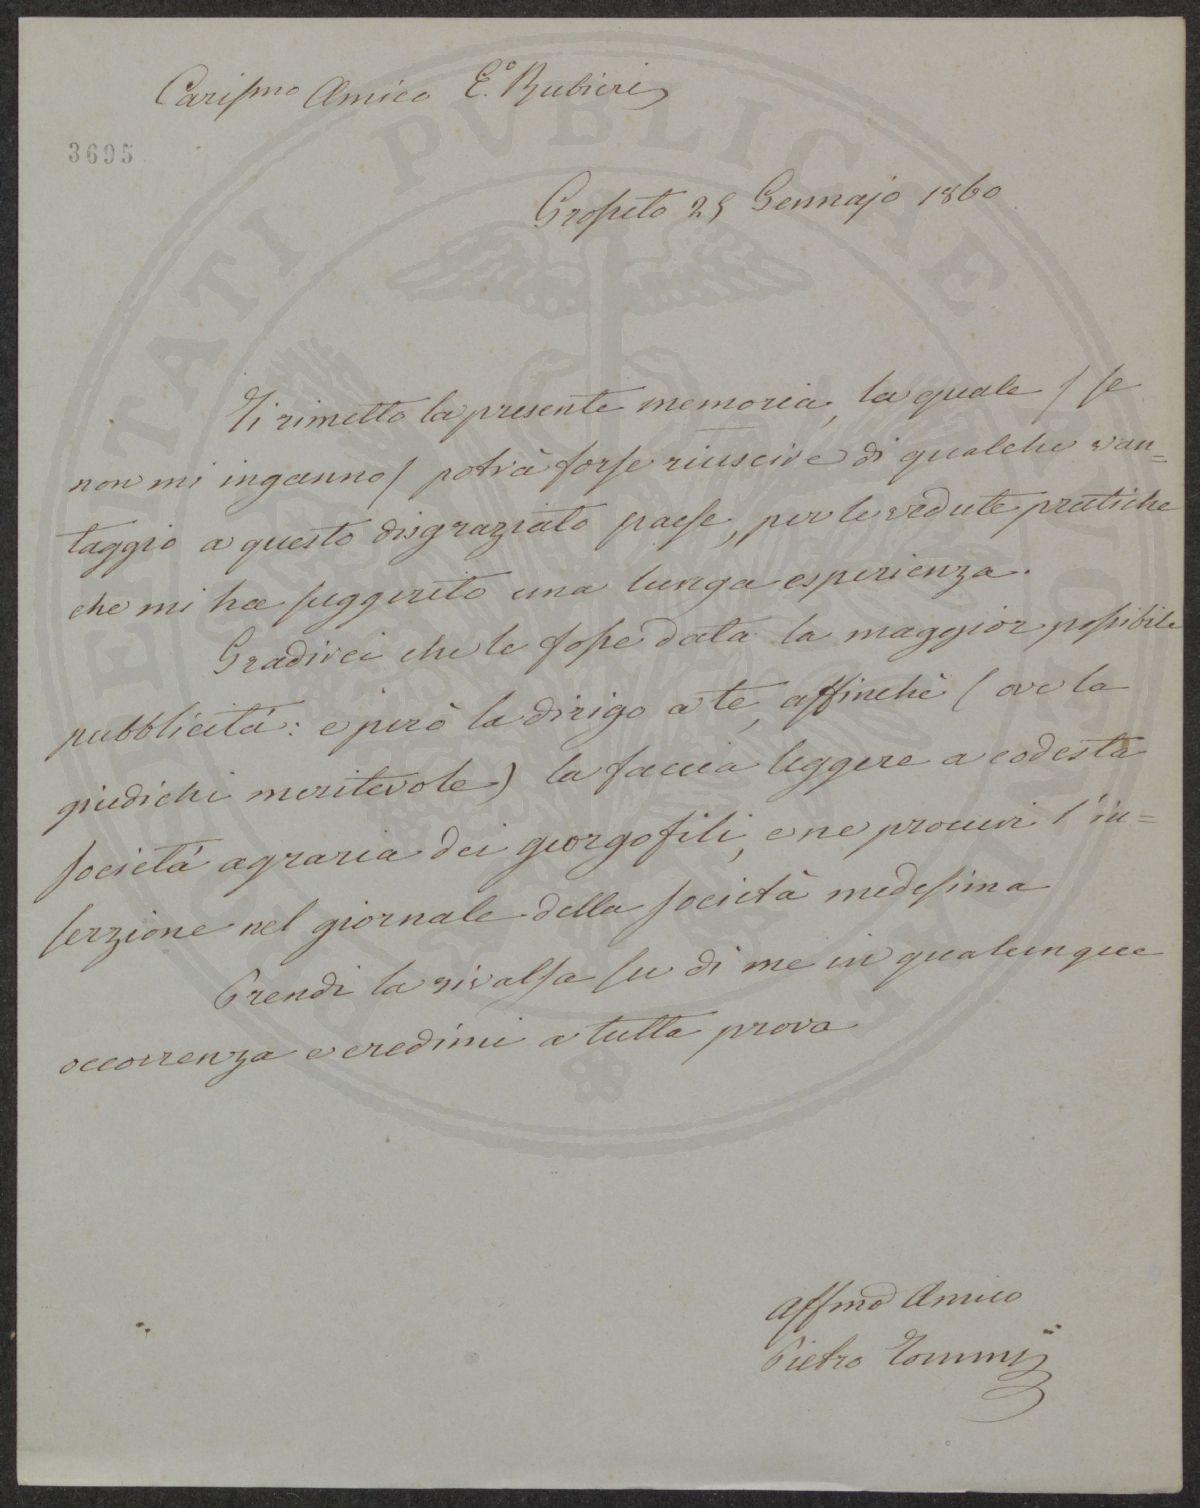 Cariſsmo Amico E.o Rubieri
3695
Groſseto 25 Gennajo 1860
Ti rimetto la presente memoria, la quale / ſe
non mi inganno / potrà forſe riuscire di qualche van=
taggio a questo disgraziato paeſe, per le vedute pratiche
che mi ha ſuggerito una lunga esperienza.
Gradirei che le foſse data la maggior poſsibile
pubblicità: e però la dirigo a te, affinchè ( ove la
giudichi meritevole) la faccia leggere a codesta
ſocietà agraria dei georgofili, e ne procuri l'in=
ſerzione nel giornale della ſocietà medeſima
Prendi la rivalſa ſu di me in qualunque
occorrenza e credimi a tutta prova
Affmo Amico
Pietro Tommi
PVBLICAE